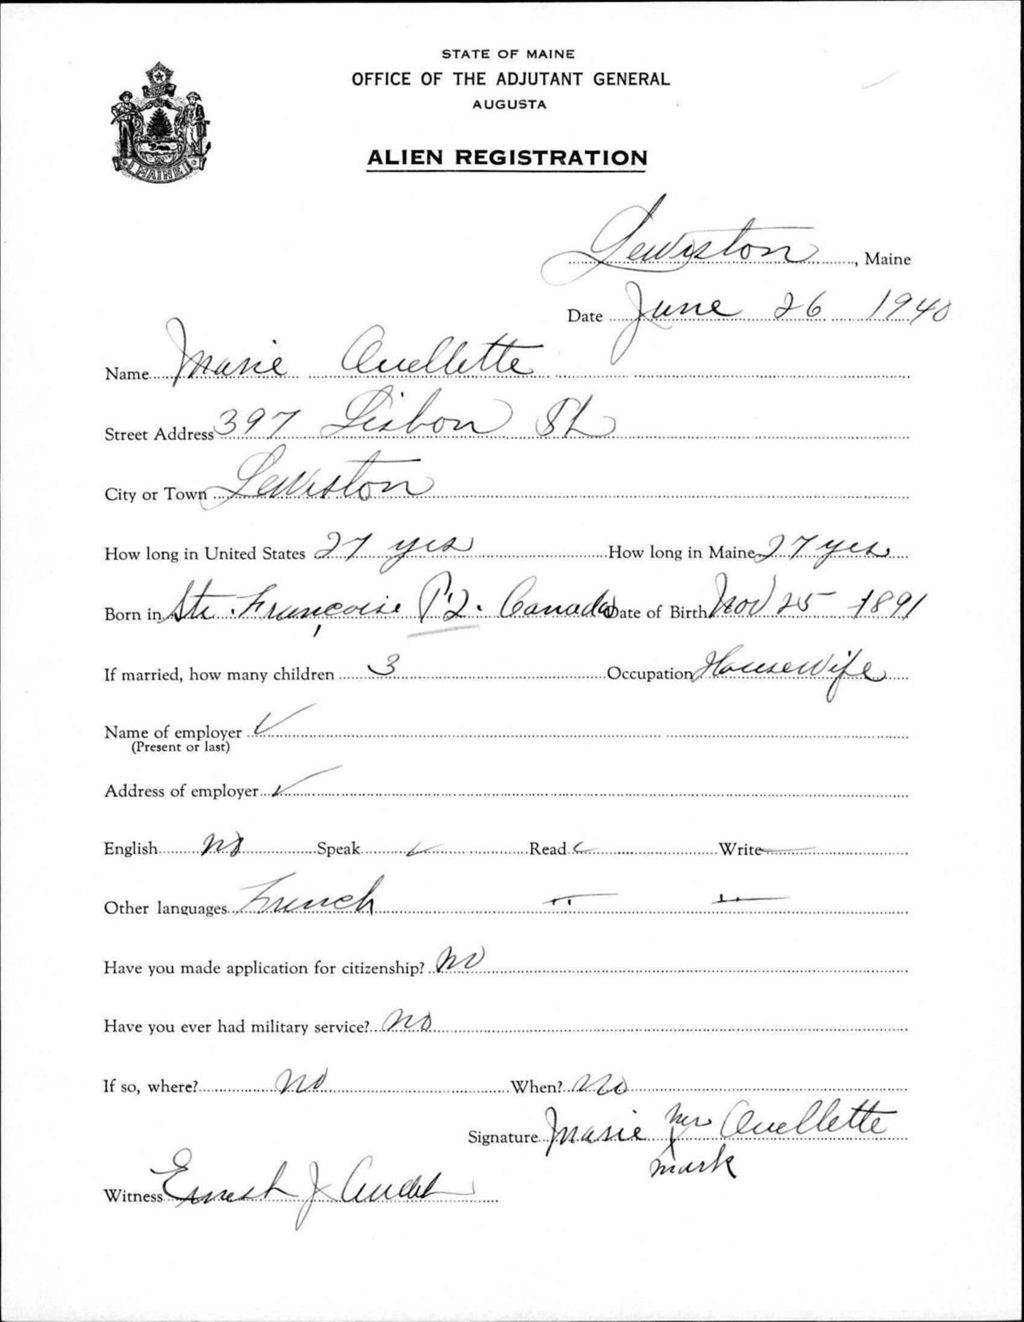 STATE OF MAINE
OFFICE OF THE ADJUTANT GENERAL
AUGUSTA
ALIEN REGISTRATION
MAINE
Lewiston, Maine
Date June 26 1940
Name Marie Ouellette
Street Address 397 Lisbon St
City or Town Lewiston
How long in United States 27 yrs How long in Maine 27 yrs
Born in Ste. Francoise P.Q. Canada Date of Birth Nov 25 1891
If married, how many children 3 Occupation HouseWife
Name of employer ✓
(Present or last)
Address of employer ✓
English No Speak ✓ Read ✓ Write —
Other languages French " "
Have you made application for citizenship? No
Have you ever had military service? No
If so, where? No When? No
Signature Marie her X Ouellette
mark
Witness Ernest J Audet